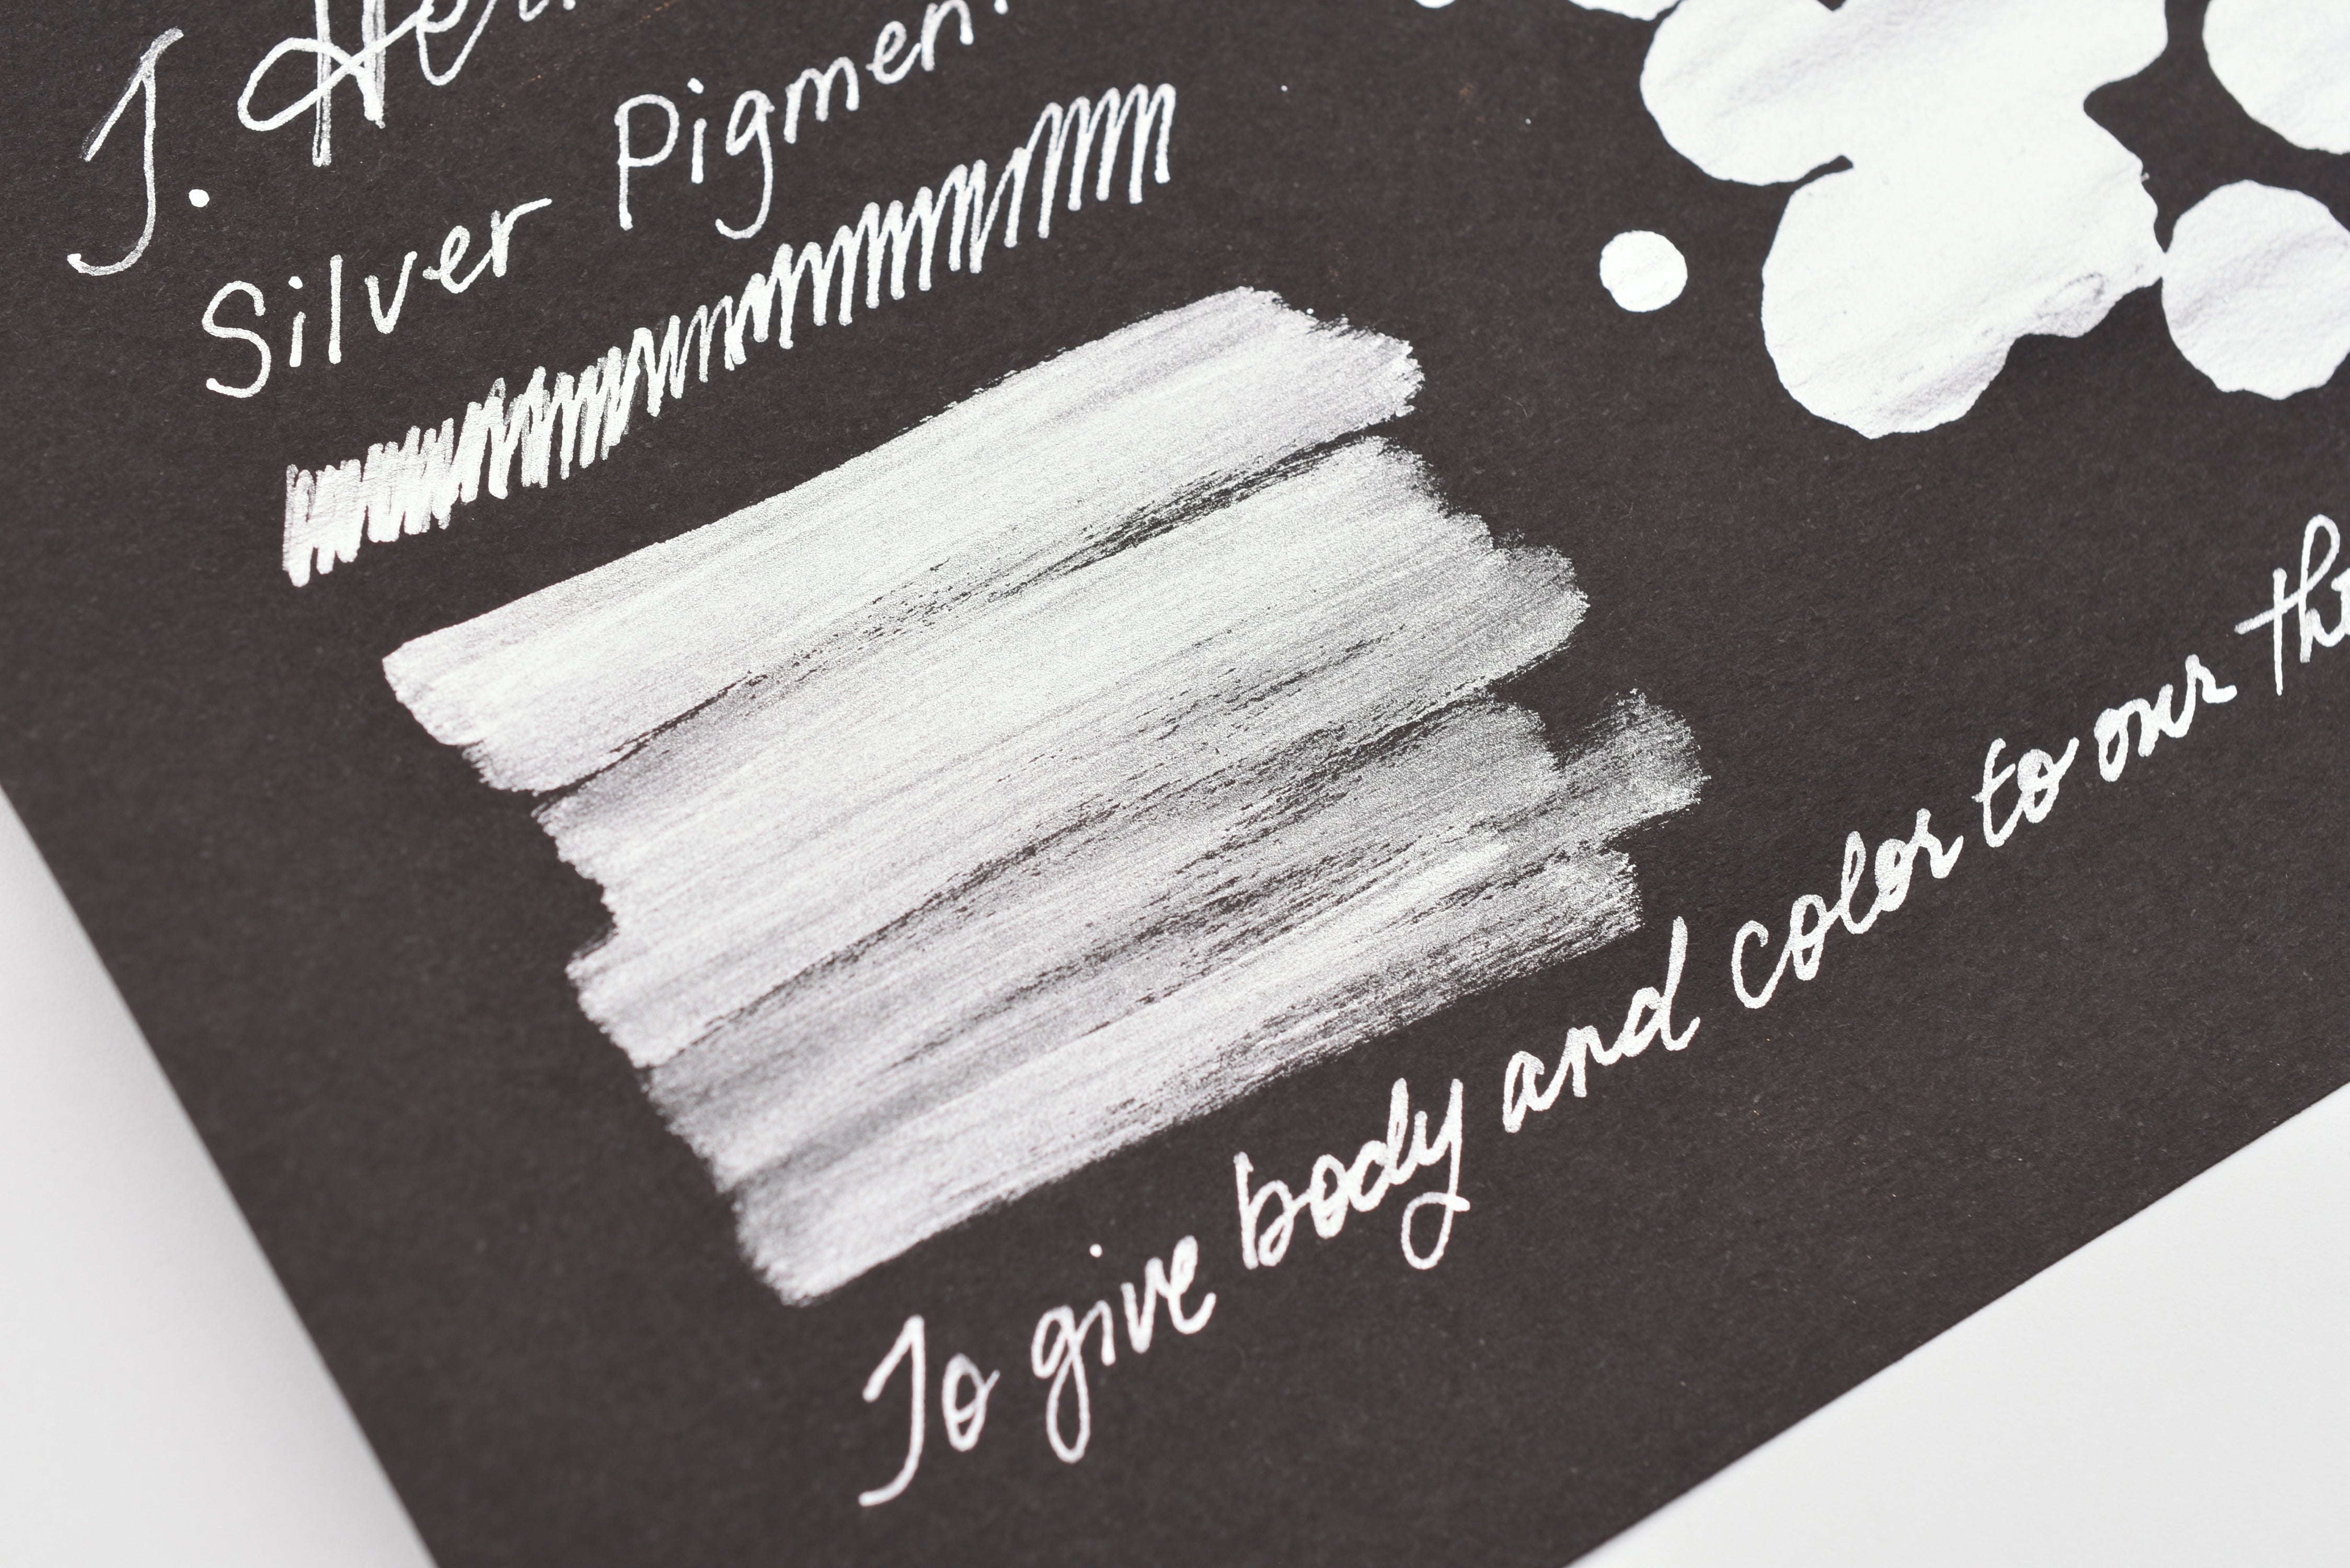 J. Her
Silver Pigmen
To give body and color to our th